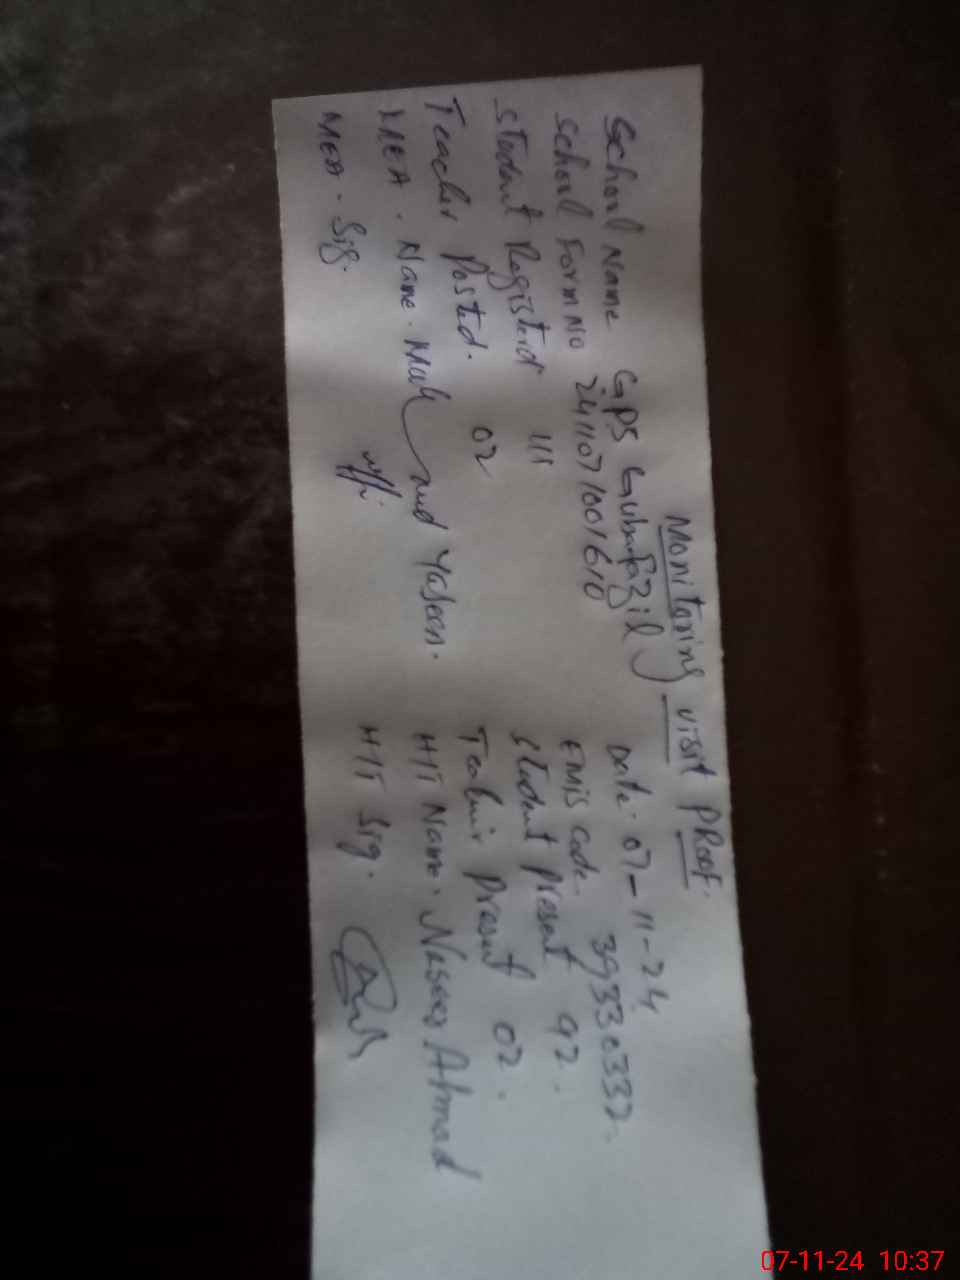 Monitoring visit PRoof.
School Name GPS Gubafazil Date. 07-11-24
School Form No 2411071001610 EMIS Code. 39330337.
Student Registerd 111 Student Present 92.
Teacher Posted. 02 Teacher Present 02.
MEA. Name. Muhammad Yaseen. H/T Name. Naseer Ahmad
MEA. Sig. H/T Sig.
07-11-24 10:37